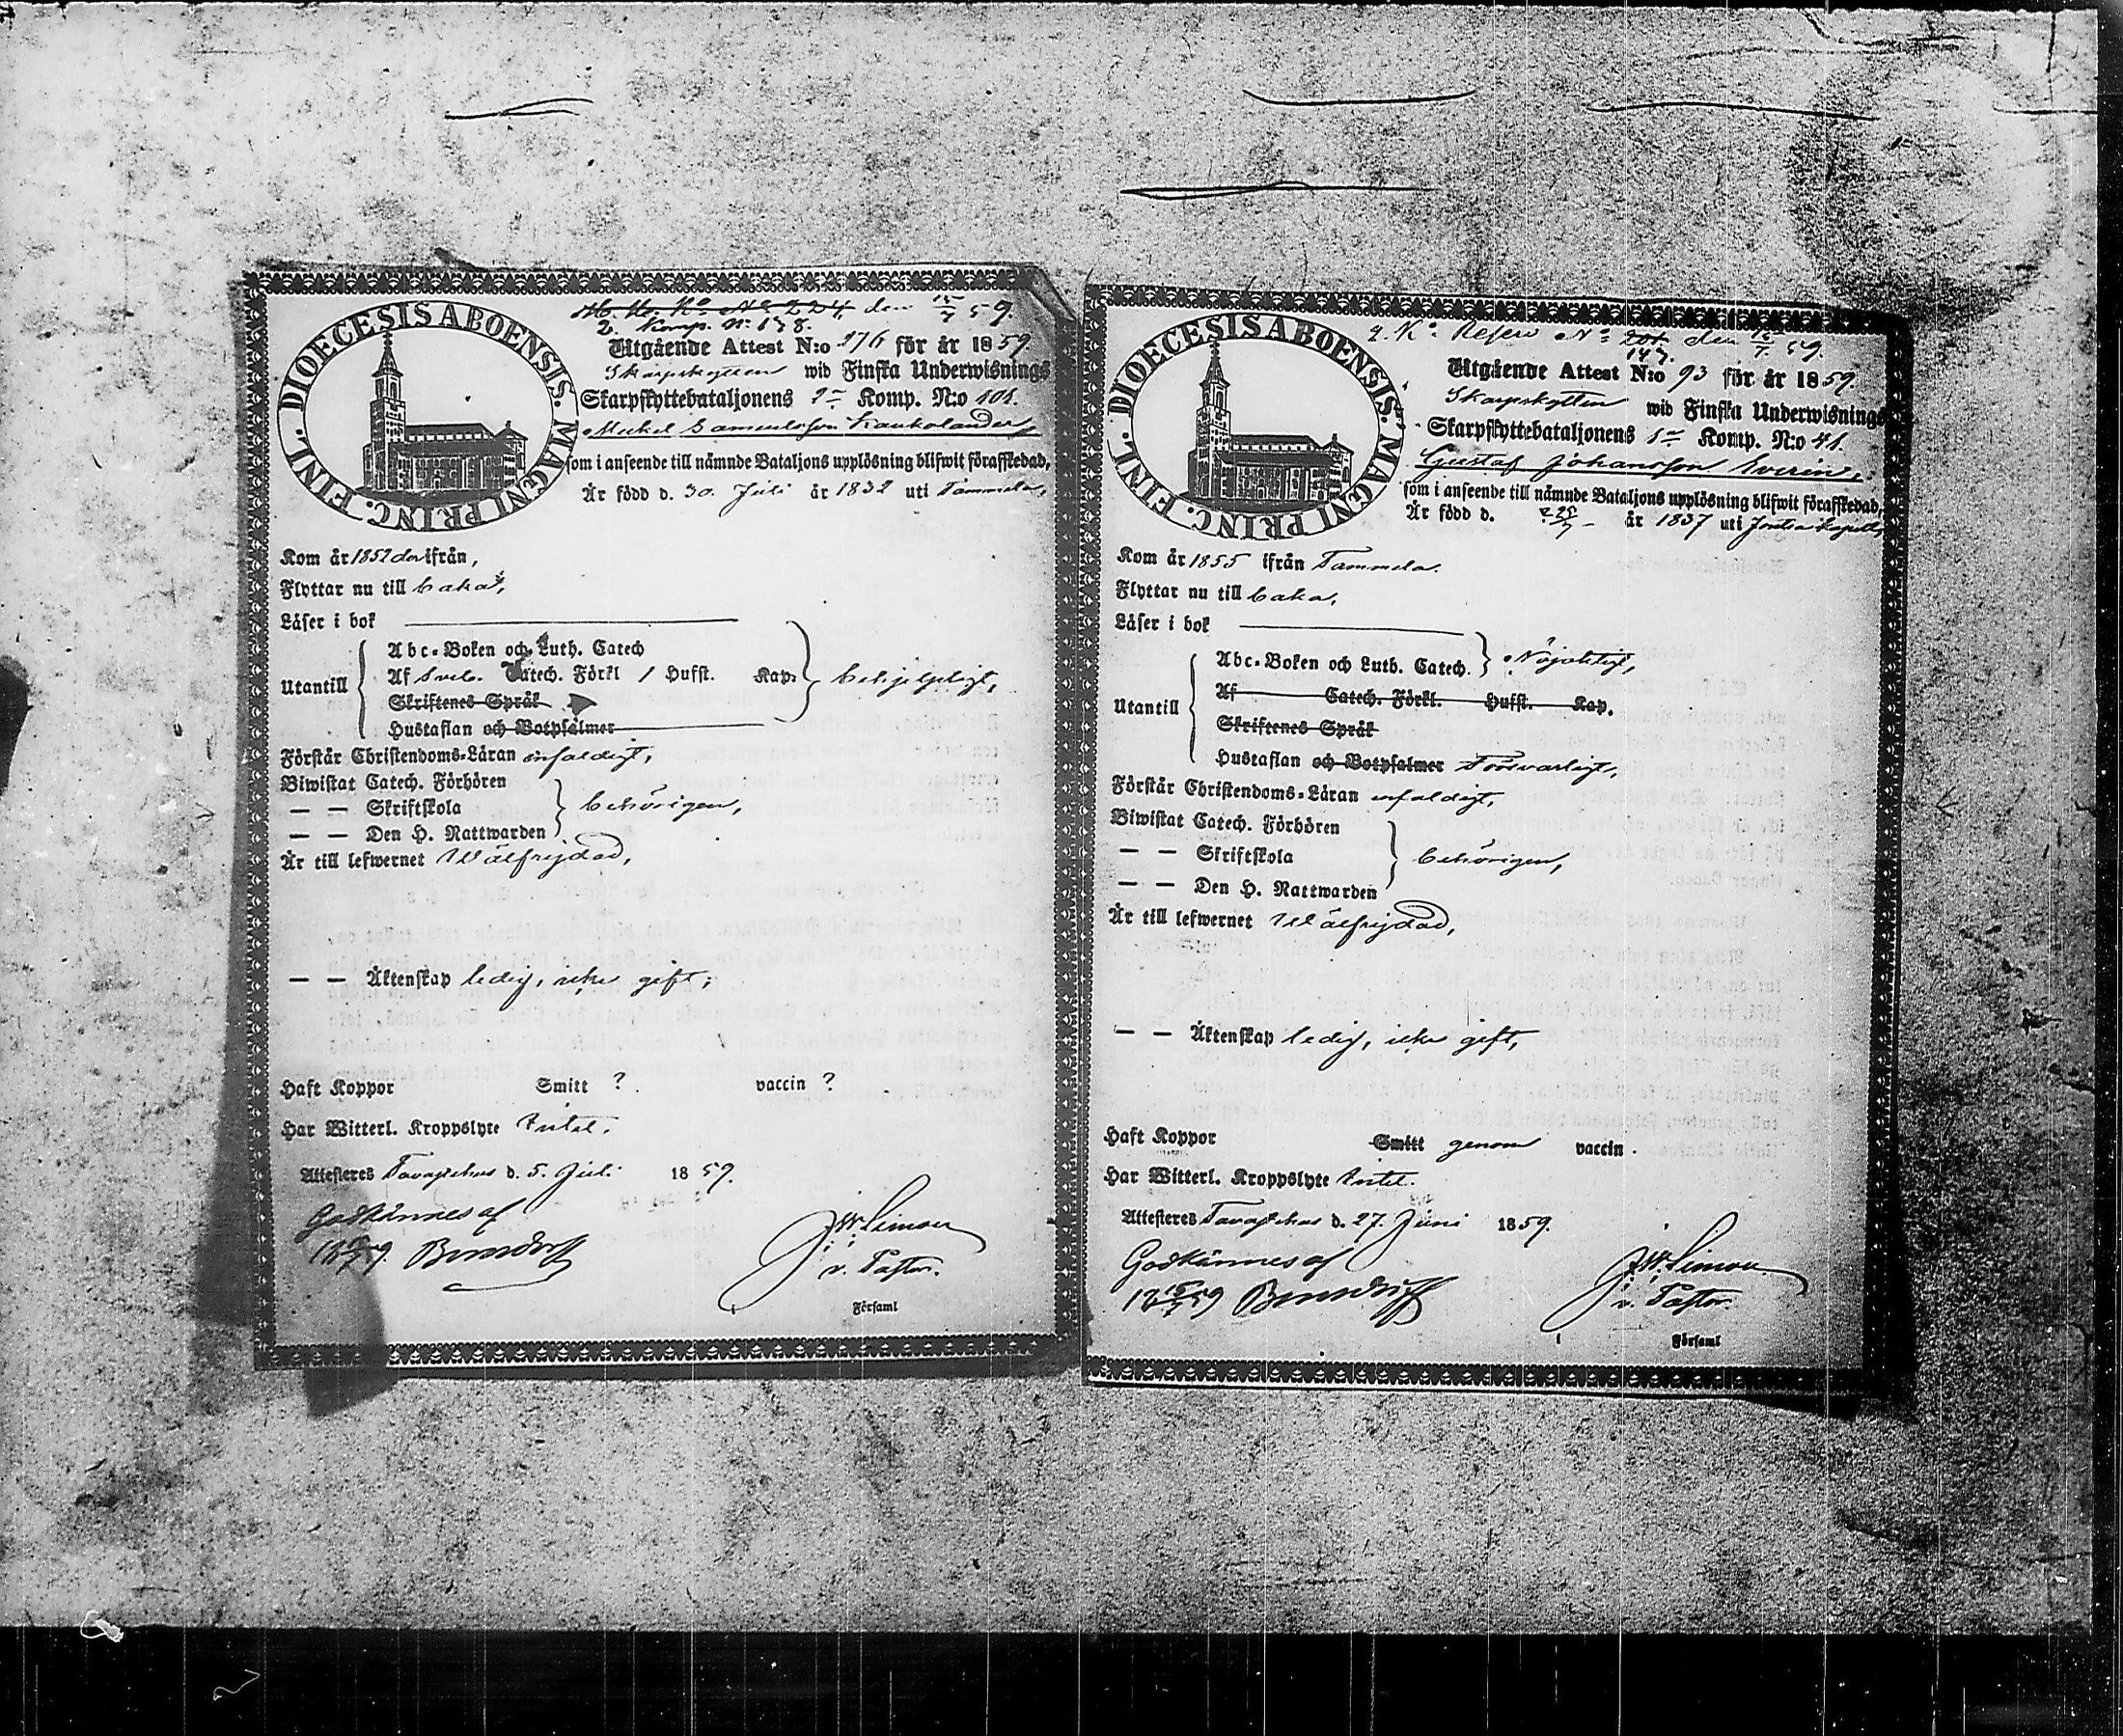 DIOECESIS ABOENSIS. MAGNI PRINC. FINL.
H. M. Ko No 224 den 15/7 59.
2. Komp. N: 178.
Utgående Attest N:o 276 för år 1859.
Skarpskytten wid Finska Underwisnings
Skarpskyttebataljonens 2 Komp. N:o 101.
Michel Samuelsson Kaukolander,
som i anseende till nämnde Bataljons upplösning blifwit förafskedad,
Är född d. 30. Juli år 1832 uti Tammela,
Kom år 1852 der ifrån,
Flyttar nu till baka,
Läser i bok
Abc-Boken och Luth. Catech
Utantill Af Sveb. Catech. Förkl / Hufst. Kap. behjelpligt,
Skriftenes Språk
Hustaflan och Botpsalmer
Förstår Christendoms-Läran enfaldigt,
Biwistat Catech. Förhören
— — Skriftskola behörigen,
— — Den H. Nattwarden
Är till lefwernet Wälfrejdad,
— — Äktenskap ledig, icke gift;
Haft Koppor Smitt ? vaccin ?
Har Witterl. Kroppslyte Intet.
Attesteras Tavastehus d. 5. Juli 1859.
Godkännes af
J. W. Limon
v. Pastor.
Församl
DIOECESIS ABOENSIS. MAGNI PRINC. FINL.
2. Ko Reserv No 201 den 15/7 59.
147.
Utgående Attest N:o 93 för år 1859.
Skarpskytten wid Finska Underwisnings
Skarpskyttebataljonens 1 Komp. N:o 41.
Gustaf Johansson Iverin,
som i anseende till nämnde Bataljons upplösning blifwit förafskedad,
Är född d. 25/7 år 1837 uti Jockis kapell,
Kom år 1855 ifrån Tammela.
Flyttar nu till baka,
Läser i bok
Abc-Boken och Luth. Catech. Nöjaktigt,
Utantill Af Catech. Förkl. Hufst. Kap.
Skriftenes Språk
Hustaflan och Botpsalmer Försvarligt,
Förstår Christendoms-Läran enfaldigt,
Biwistat Catech. Förhören
— — Skriftskola behörigen,
— — Den H. Nattwarden
Är till lefwernet Wälfrejdad,
— — Äktenskap ledig, icke gift,
Haft Koppor Smitt genom vaccin.
Har Witterl. Kroppslyte Intet.
Attesteras Tavastehus d. 27. Juni 1859.
Godkännes af
J. W. Limon
v. Pastor.
Församl